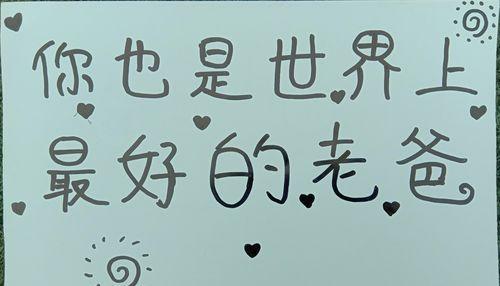 你也是世界上
最好的老爸